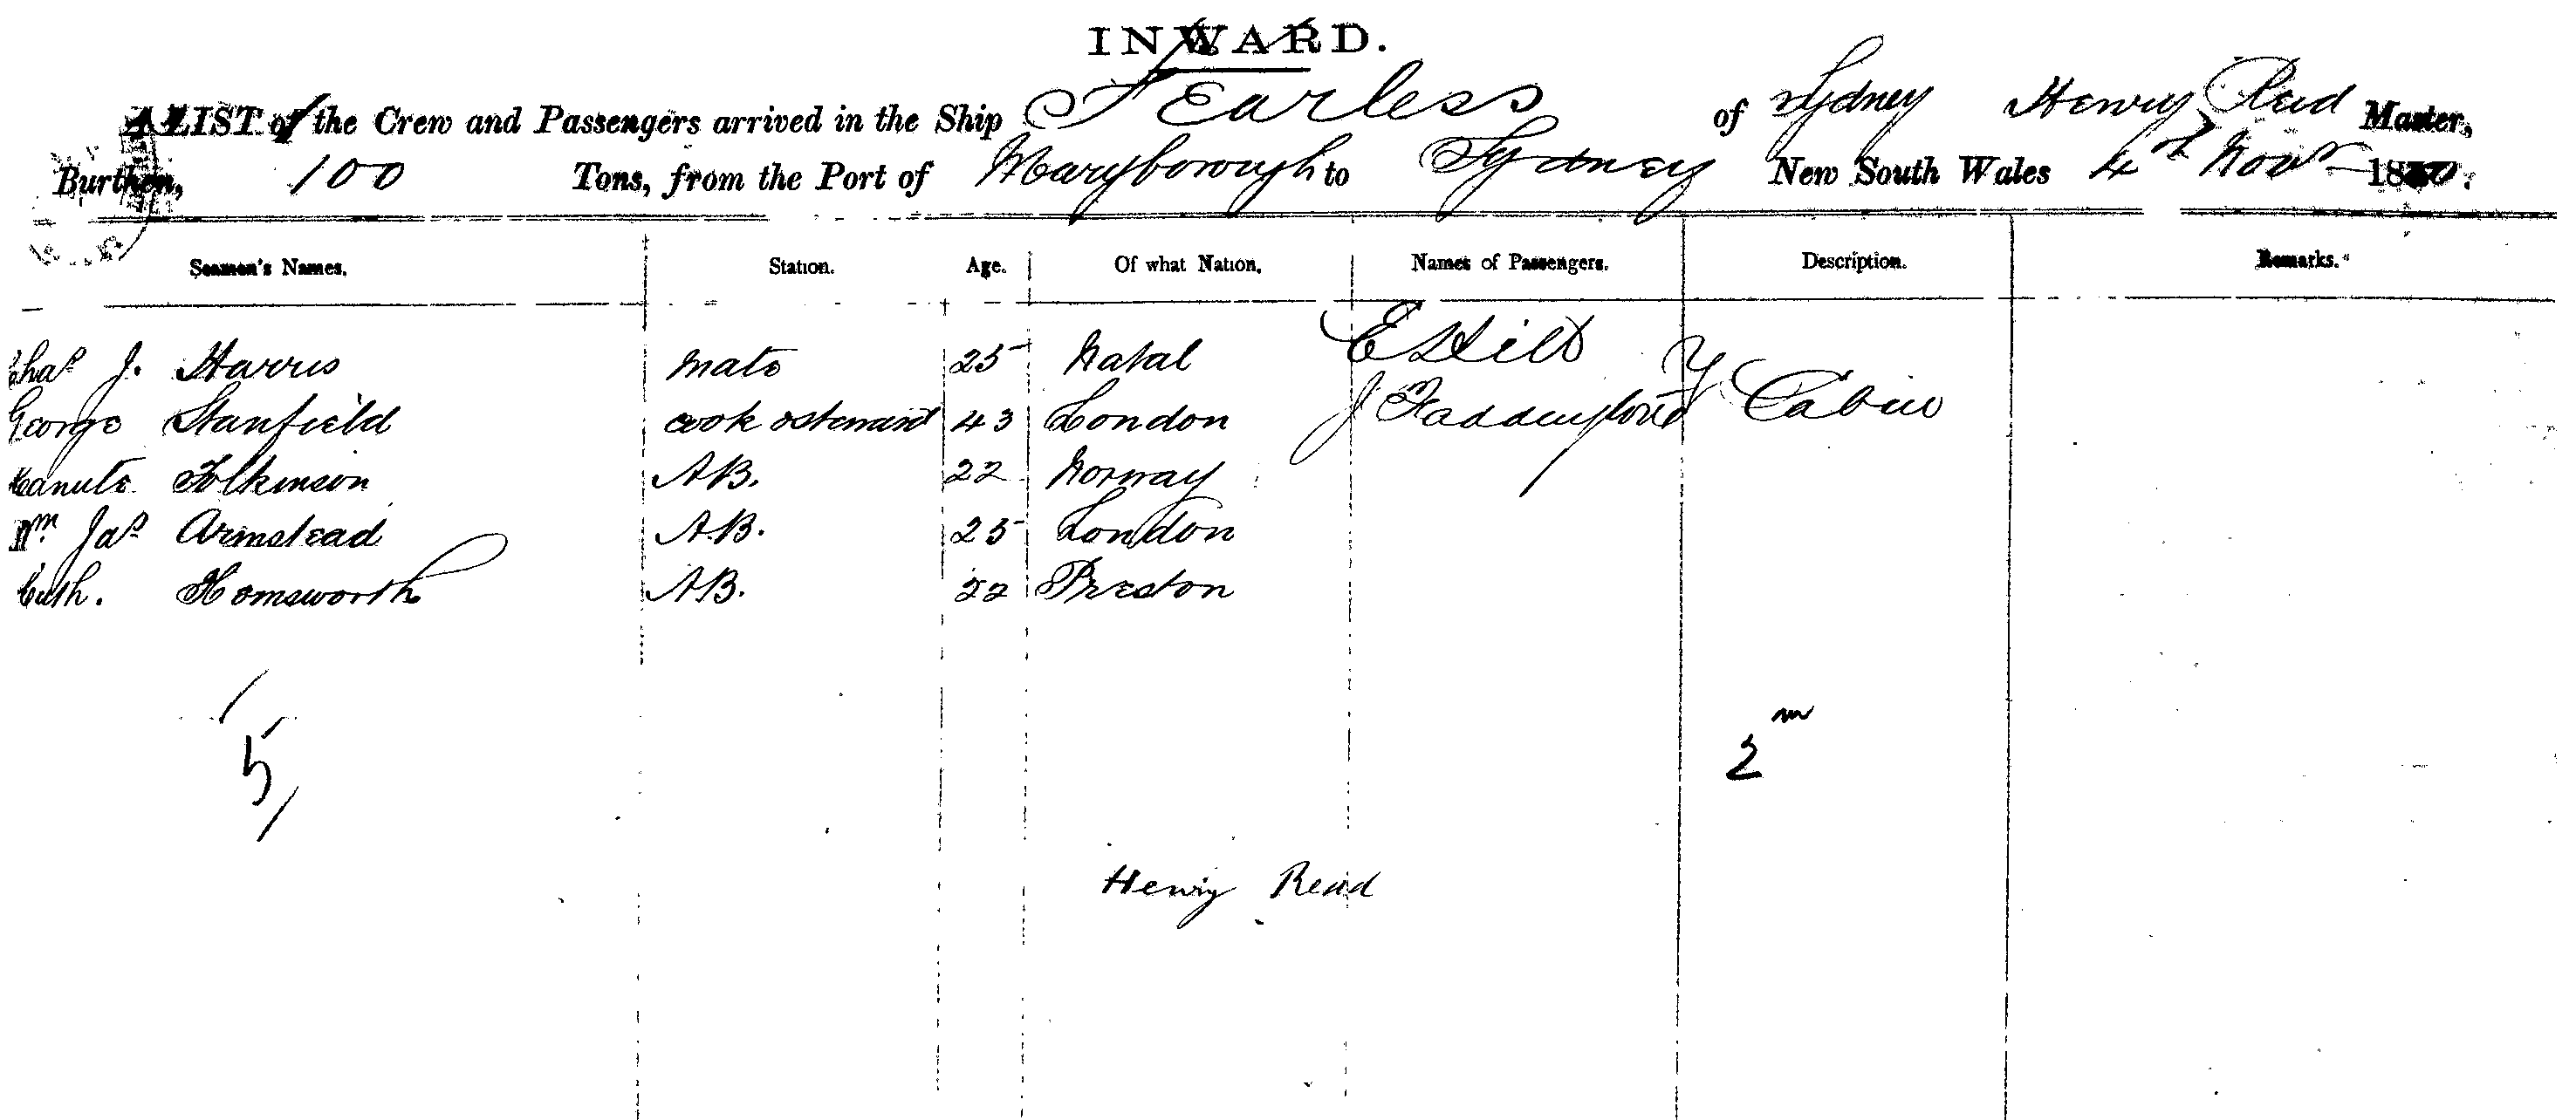 INWARD.
A LIST of the Crew and Passengers arrived in the Ship Fearless of Sydney Henry Read Master,
Burthen, 100 Tons, from the Port of Maryborough to Sydney New South Wales 4th Novr 1870.
Seamen's Names. Station. Age. Of what Nation. Names of Passengers. Description. Remarks.
Chas J. Harris Mate 25 Natal E Hill
George Stanfield cook & steward 43 London J Cabin
Canute Folkinson AB. 22 Norway
Wm Jas Armstead AB. 25 London
Cuth. Homsworth AB. 22 Preston
5
2 m
Henry Read